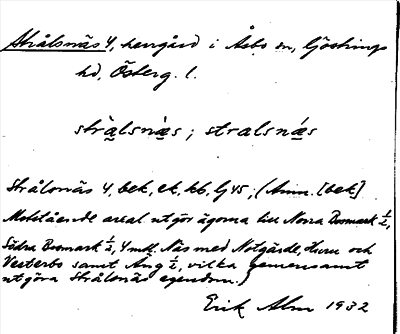 Strålsnäs 4, herrgård i Åsbo sn, Göstrings
hd, Österg. l.
strålsnä̀s ; stralsnä́s
Strålsnäs 4, bek, ek, kb, Gj 45; (Anm. [bek]
Motstående areal utgör ägorna till Norra Bosmark ½,
Södra Bosmark ½, 4 mtl. Näs med Notgärde, och
Västerbo samt Äng ½, vilka gemensamt
utgöra Strålsnäs egendom.)
Erik Alm 1932